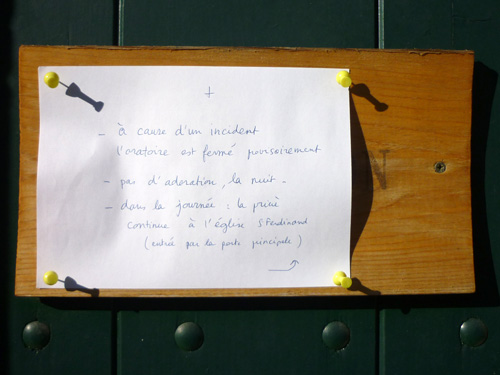 +
- à cause d'un incident
l'oratoire est fermé poursoirement
- pas d'adoration, la nuit -
- dans la journée : la prière
continue à l'église St Ferdinand
(entrée par la porte principale)
N